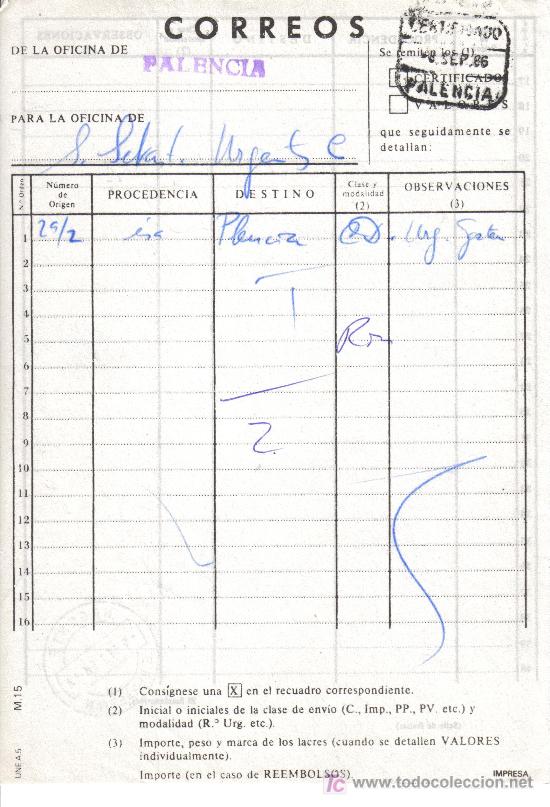 CORREOS
DE LA OFICINA DE
PALENCIA
PARA LA OFICINA DE
Urgente
Se remiten los (1)
CERTIFICADO
VALORES
que seguidamente se
detallan:
CERTIFICADO
SEP. 86
PALENCIA
N.º Orden
Número
de
Origen
PROCEDENCIA
DESTINO
Clase y
modalidad
(2)
OBSERVACIONES
(3)
1 29/2 Urg.
2
3
4
5
6
7
8
9
10
11
12
13
14
15
16
M.15
UNE A5
(1) Consígnese una X en el recuadro correspondiente.
(2) Inicial o iniciales de la clase de envío (C., Imp., PP., PV. etc.) y
modalidad (R.º Urg. etc.).
(3) Importe, peso y marca de los lacres (cuando se detallen VALORES
individualmente).
Importe (en el caso de REEMBOLSOS).
IMPRESA
tc www.todocoleccion.net